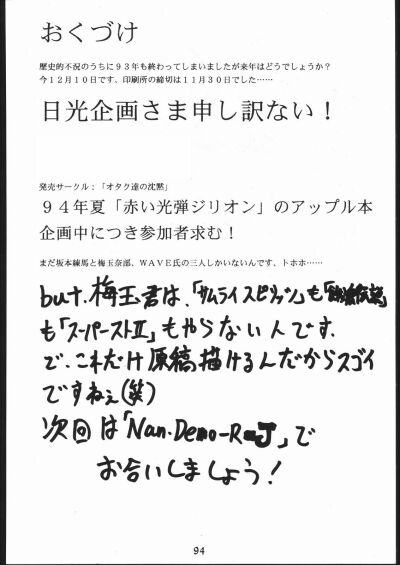 おくづけ
歴史的不況のうちに93年も終わってしまいましたが来年はどうでしょうか?
今12月10日です、印刷所の締切は11月30日でした……
日光企画さま申し訳ない!
発売サークル:「オタク達の沈黙」
94年夏「赤い光弾ジリオン」のアップル本
企画中につき参加者求む!
まだ坂本練馬と梅玉奈部、WAVE氏の三人しかいないんです、トホホ……
but.梅玉君は、「サムライスピリッツ」も「餓狼伝説」
も「スーパーストII」もやらない人です.
で.これだけ原稿描けるんだからスゴイ
ですねぇ(笑)
次回は「Nan-Demo-R J」で
お合いしましょう!
94